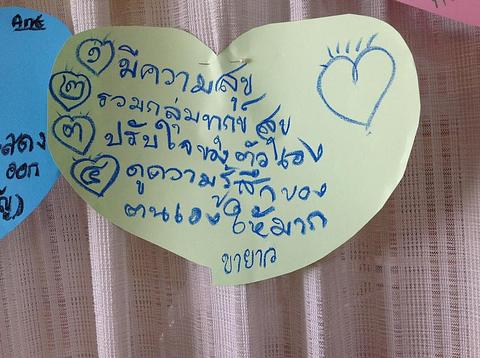 Ant
๑ มีความสุข
๒ รวมกลุ่มทุกข์ สุข
๓ ปรับใจของตัวเอง
๔ ดูความรู้สึกของ
ตนเองให้มาก
สดง
ออก